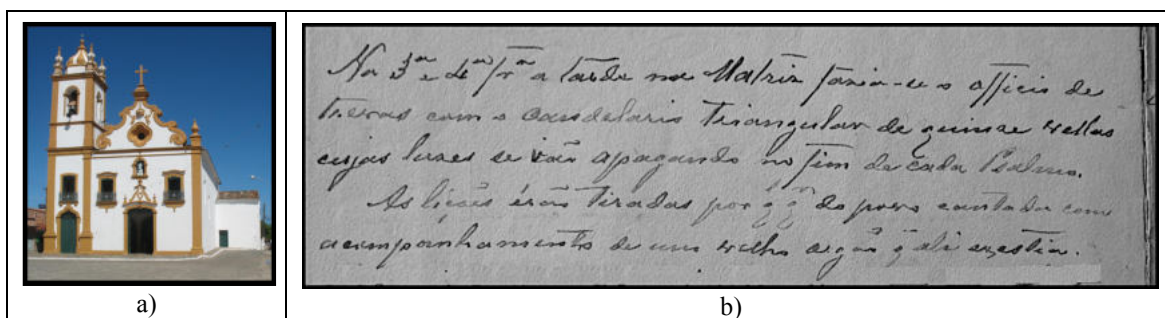 Na 3ª e 4ª frª a tarde na Matriz fazia-se o officio de
trevas com o candelario triangular de quinze vellas
cujas luzes se vão apagando no fim de cada Psalmo.
As lições érão tiradas por do povo cantada com
acompanhamento de um velho orgão q̃ ali existia.
a)
b)